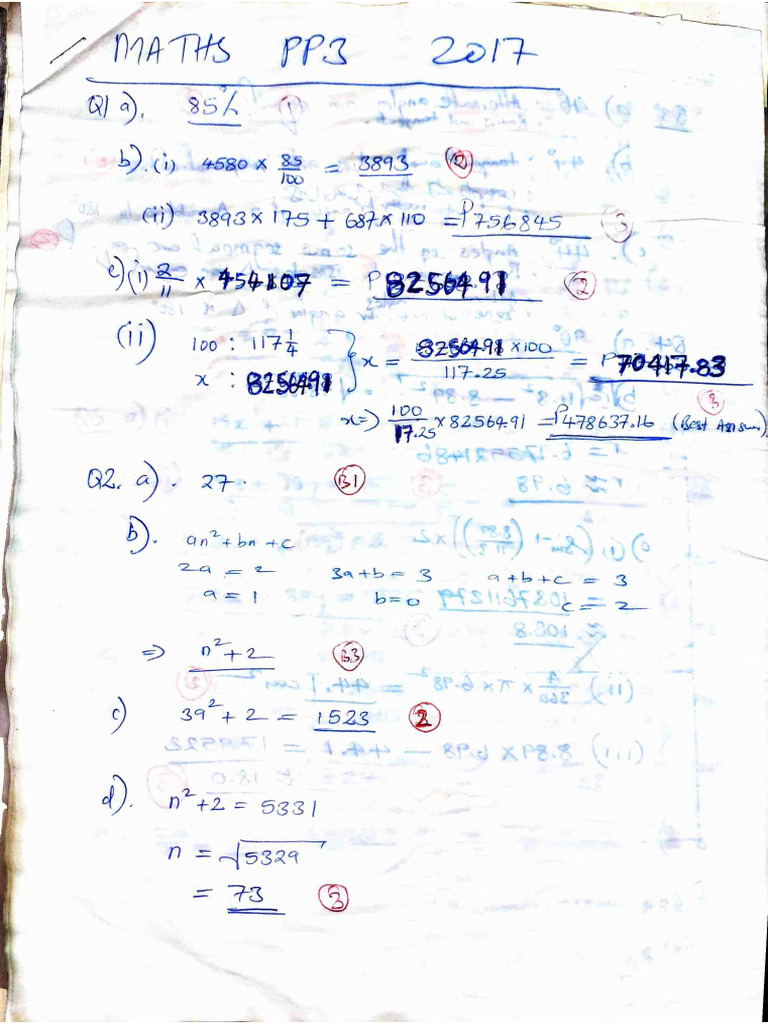 MATHS PP3 2017
Q1 a). 85% (1)
b). (i) 4580 × 85/100 = 3893 (2)
(ii) 3893 × 175 + 687 × 110 = P756845 (3)
c) (i) 2/11 × 454107 = P 82564.91 (2)
(ii) 100 : 117 1/4
x : 82564.91
} x = 82564.91 × 100 / 117.25 = P70417.83 (3)
x => 100/17.25 × 82564.91 = P478637.16 (Best Answer)
Q2. a). 27. (B1)
b). an² + bn + c
2a = 2 3a + b = 3 a + b + c = 3
a = 1 b = 0 c = 2
=> n² + 2 (B3)
c) 39² + 2 = 1523 (2)
d). n² + 2 = 5331
n = √5329
= 73 (3)